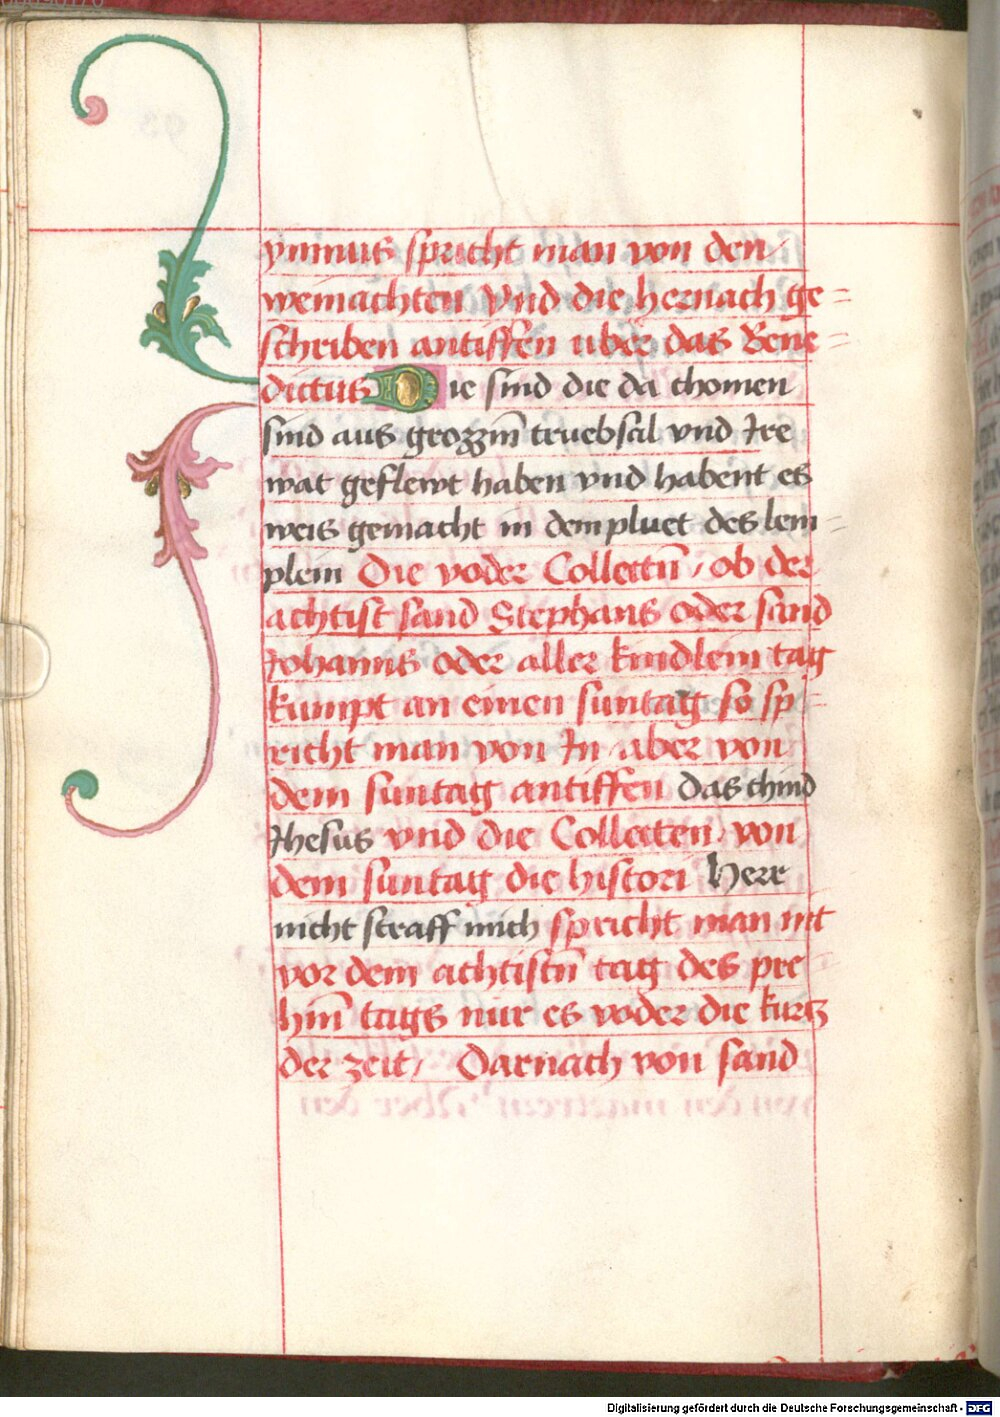 ymnus spricht man von den
weinachten Vnd die hernach ge=
schriben antiffen uber das Bene=
dictus Die sind die da chomen
sind aus grozzm̄ truebsal vnd Ire
wat geflewt haben vnd habent es
weis gemacht in dem pluet des lem=
plein Die voder Collectn̄, ob der
achtist sand Stephans oder sand
Johanns oder aller kindlein tag
kumpt an einen suntag so sp=
richt man von In aber von
dem suntag antiffen Das chind
Jhesus vnd die Collecten von
dem suntag die histori Herr
nicht straff mich spricht man nit
vor dem achtistn̄ tag des pre
hm̄ tags nur es voder die kurtz
der zeit, Darnach von sand
Digitalisierung gefördert durch die Deutsche Forschungsgemeinschaft - DFG